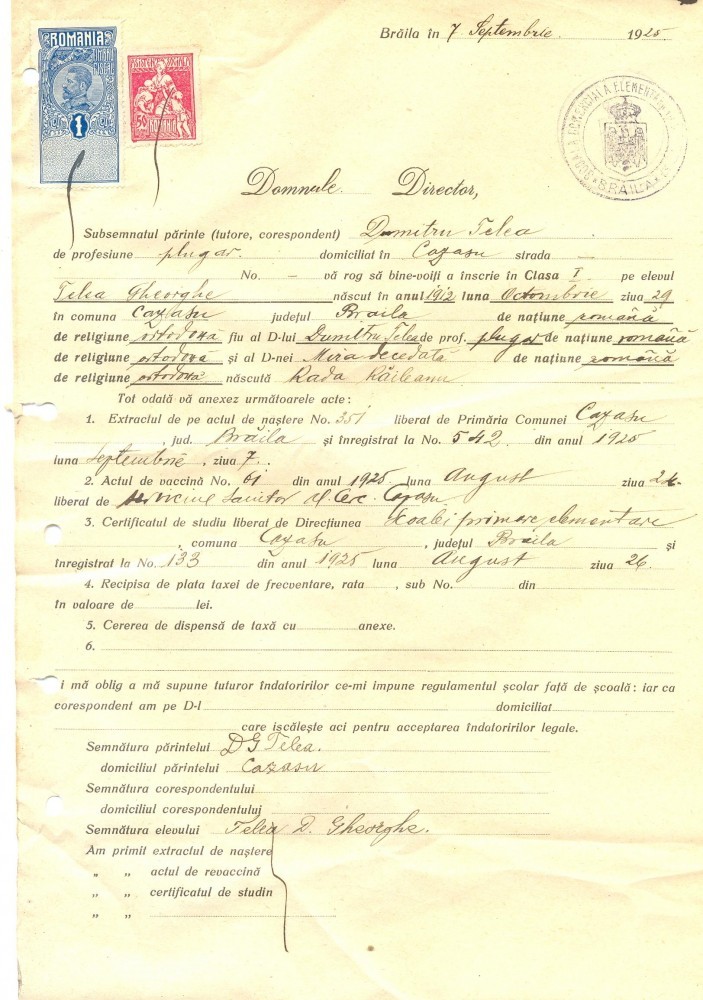 Brăila în 7 Septembrie 1925
ROMANIA
TIMBRU FISCAL
1
50
ROMANIA
ȘCOALA COMERCIALĂ ELEMENTARĂ
BRĂILA
Domnule Director,
Subsemnatul părinte (tutore, corespondent) Dumitru Telea
de profesiune plugar. domiciliat în Cazasu strada —
No. — vă rog să bine-voiți a înscrie în Clasa I pe elevul
Telea Gheorghe născut în anul 1912 luna Octombrie ziua 29
în comuna Cazasu județul Braila de națiune română
de religiune ortodoxă fiu al D-lui Dumitru Telea de prof. plugar de națiune română
de religiune ortodoxă și al D-nei decedată de națiune română
de religiune ortodoxă născută Rada Răileanu
Tot odată vă anexez următoarele acte :
1. Extractul de pe actul de naștere No. 351 liberat de Primăria Comunei Cazasu
, jud. Brăila și înregistrat la No. 542 din anul 1925
luna Septembrie, ziua 7.
2. Actul de vaccină No. 61 din anul 1925 luna August ziua 24
liberat de Sanitar al Circ. Cazasu
3. Certificatul de studiu liberat de Direcțiunea Școalei primare elementare
, comuna Cazasu, județul Brăila și
înregistrat la No. 133 din anul 1925 luna August ziua 26.
4. Recipisa de plata taxei de frecventare, rata , sub No. din
în valoare de lei.
5. Cererea de dispensă de taxă cu anexe.
6.
i mă oblig a mă supune tuturor îndatoririlor ce-mi impune regulamentul școlar față de școală : iar ca
corespondent am pe D-l domiciliat
care iscălește aci pentru acceptarea îndatoririlor legale.
Semnătura părintelui D G Telea.
domiciliul părintelui Cazasu
Semnătura corespondentului
domiciliul corespondentului
Semnătura elevului Telea D. Gheorghe.
Am primit extractul de naștere
„ „ actul de revaccină
„ „ certificatul de studin
„ „